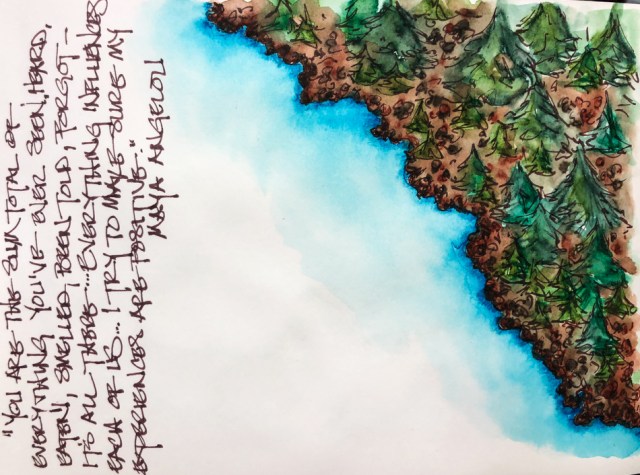 "YOU ARE THE SUM TOTAL OF
EVERYTHING YOU'VE EVER SEEN, HEARD,
EATEN, SMELLED, BEEN TOLD, FORGOT -
IT'S ALL THERE... EVERYTHING INFLUENCES
EACH OF US... I TRY TO MAKE SURE MY
EXPERIENCES ARE POSITIVE."
MAYA ANGELOU